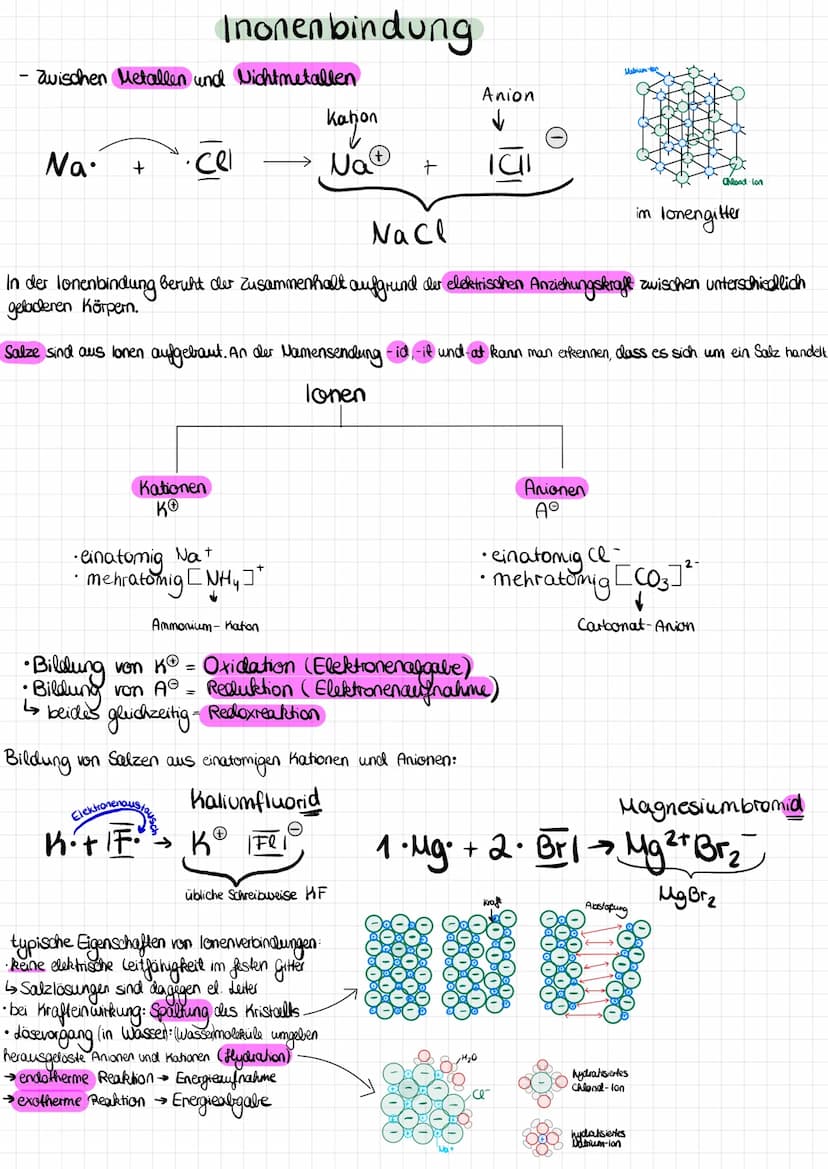 Inonenbindung
- Zwischen Metallen und Nichtmetallen
Natrium-Ion
Chlorid-Ion
im Ionengitter
Kation
Anion
Na· + ·Cl| → Na⊕ + |Cl| ⊖
NaCl
In der Ionenbindung beruht der Zusammenhalt aufgrund der elektrischen Anziehungskraft zwischen unterschiedlich
geladenen Körpern.
Salze sind aus Ionen aufgebaut. An der Namensendung -id, -it und -at kann man erkennen, dass es sich um ein Salz handelt
Ionen
Kationen
K⊕
· einatomig Na⁺
· mehratomig [NH₄]⁺
Ammonium-Kation
Anionen
A⊖
· einatomig Cl⁻
· mehratomig [CO₃]²⁻
Carbonat-Anion
· Bildung von K⊕ = Oxidation (Elektronenabgabe)
· Bildung von A⊖ = Reduktion (Elektronenaufnahme)
↳ beides gleichzeitig = Redoxreaktion
Bildung von Salzen aus einatomigen Kationen und Anionen:
Kaliumfluorid
Elektronenaustausch
K· + |F· → K⊕ |Fl| ⊖
übliche Schreibweise KF
Magnesiumbromid
1·Mg· + 2· Br| → Mg²⁺Br₂⁻
MgBr₂
typische Eigenschaften von Ionenverbindungen:
· keine elektrische Leitfähigkeit im festen Gitter
↳ Salzlösungen sind dagegen el. Leiter
· bei Krafteinwirkung: Spaltung des Kristalls
· Lösevorgang (in Wasser): (Wasser)moleküle umgeben
herausgelöste Anionen und Kationen (Hydration)
→ endotherme Reaktion → Energieaufnahme
→ exotherme Reaktion → Energieabgabe
Kraft
Abstoßung
H₂O
Cl⁻
Na⁺
hydratisiertes
Chlorid-Ion
hydratisiertes
Natrium-Ion